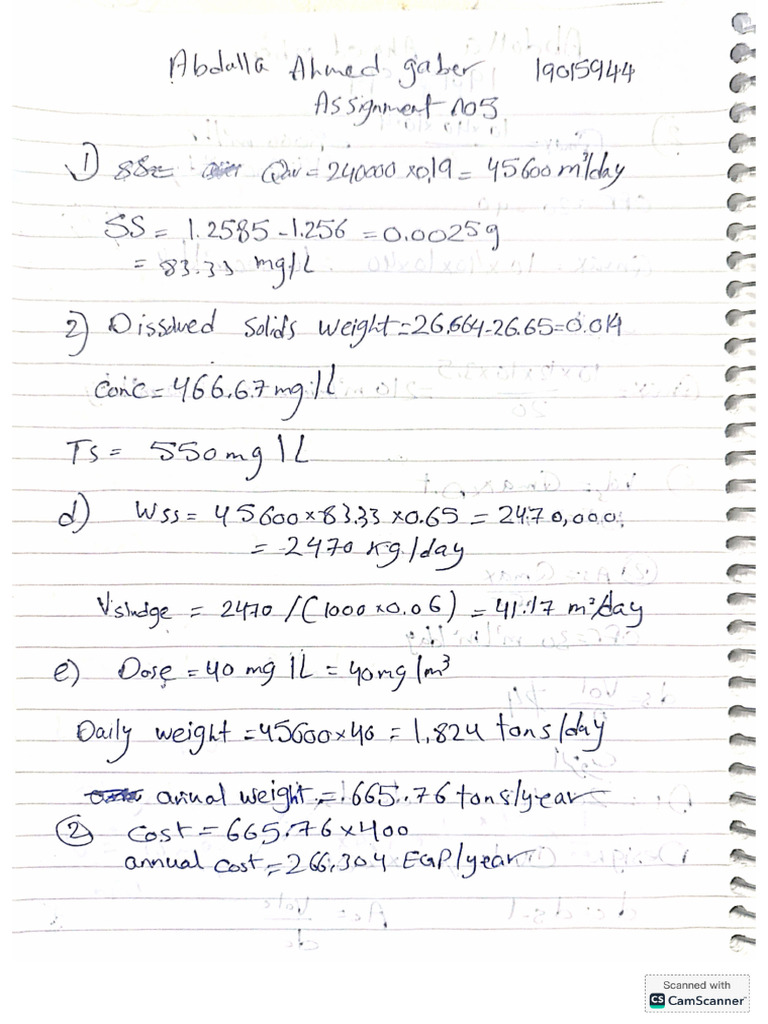 Abdalla Ahmed gaber 19015944
Assignment no5
1) Qav = 240000 × 0,19 = 45600 m³/day
SS = 1.2585 - 1.256 = 0.0025g
= 83.33 mg/L
2) Dissolved Solids weight = 26.664-26.65=0.014
Conc = 466.67 mg/L
Ts = 550 mg/L
d) Wss = 45600 × 83.33 × 0.65 = 2470,000
= 2470 kg/day
Vsludge = 2470 / (1000 × 0.06) = 41.17 m³/day
e) Dose = 40 mg/L = 40mg/m³
Daily weight = 45600 × 40 = 1.824 tons/day
anual weight = 665.76 tons/year
2 Cost = 665.76 × 400
annual cost = 266,304 EGP/year
Scanned with
CS CamScanner